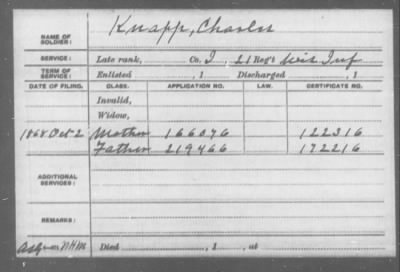 NAME OF SOLDIER: Knapp, Charles
SERVICE: Late rank, Co. I, 21 Reg't Wis Inf
TERM OF SERVICE: Enlisted , 1 Discharged , 1
DATE OF FILING. CLASS. APPLICATION NO. LAW. CERTIFICATE NO.
Invalid,
Widow,
1868 Oct 2 Mother 166076 122316
Father 219466 172216
ADDITIONAL SERVICES:
REMARKS:
Died , 1 , at